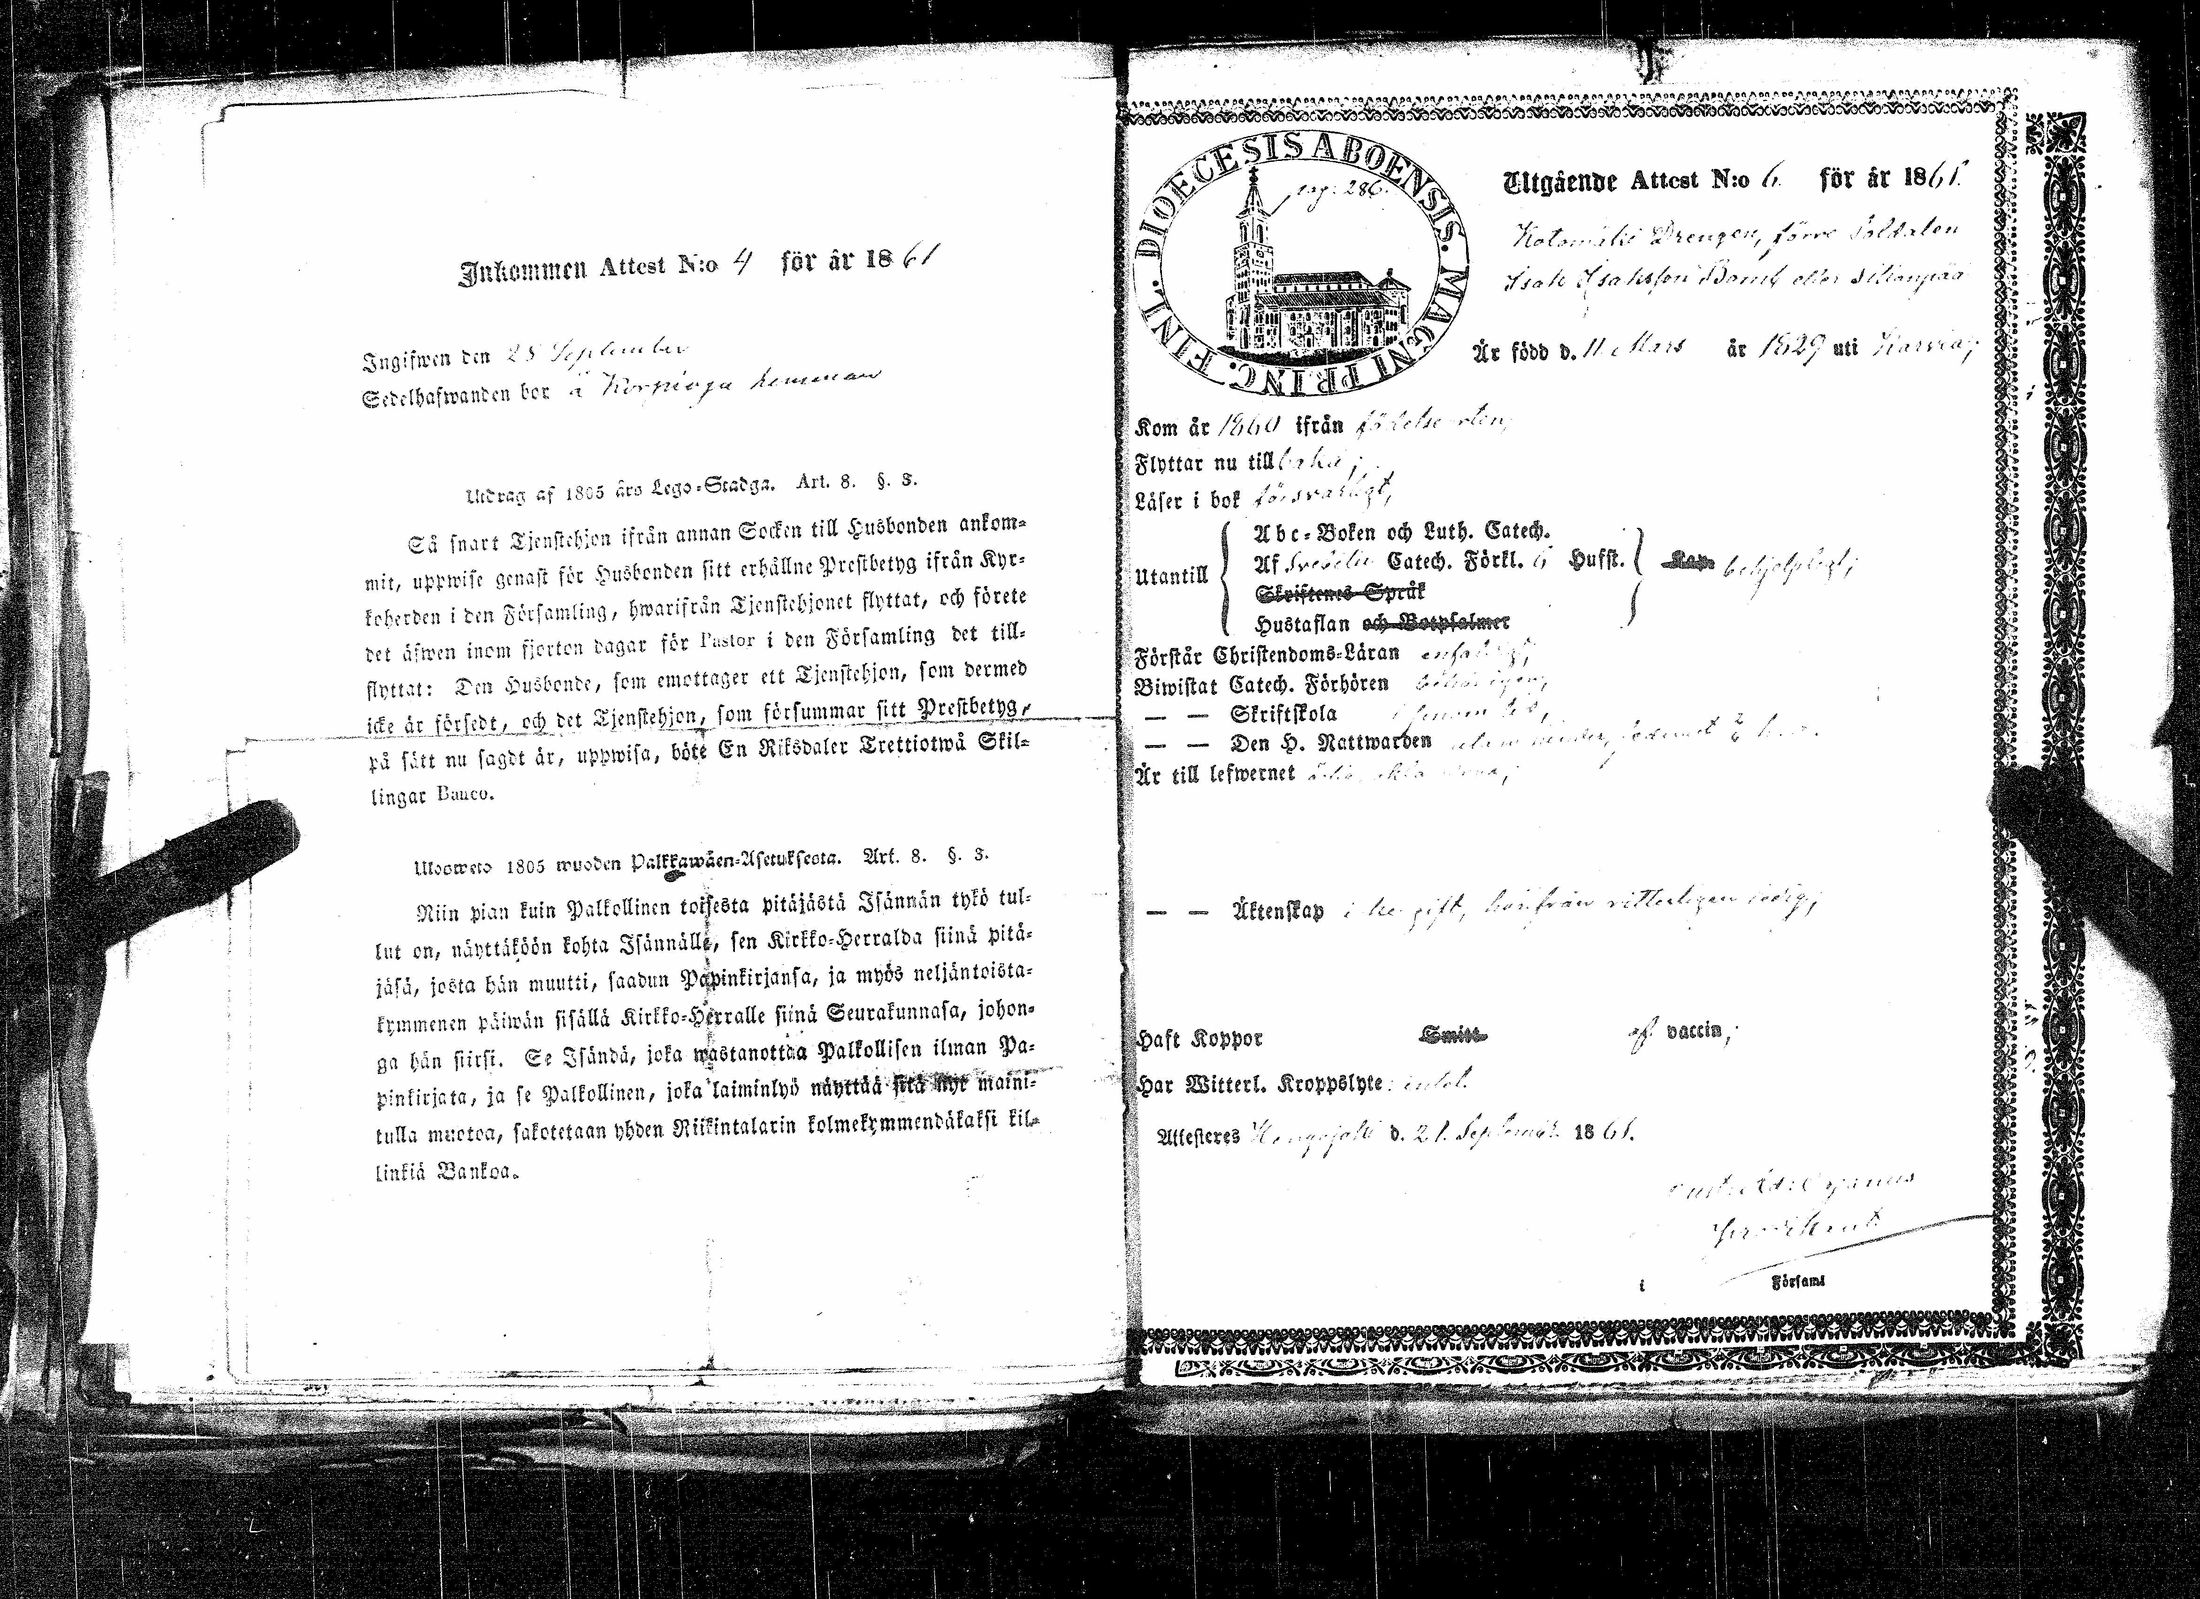 Inkommen Attest N:o 4 för år 1861
Ingifwen den 28 September
Sedelhafwanden bor å Korpioja hemman
Utdrag af 1805 års Lego-Stadga. Art. 8. §. 3.
Så snart Tjenstehjon ifrån annan Socken till Husbonden ankom-
mit, uppwise genast för Husbonden sitt erhållne Prestbetyg ifrån Kyr-
koherden i den Församling, hwarifrån Tjenstehjonet flyttat, och förete
det äfwen inom fjorton dagar för Pastor i den Församling det till-
flyttat: Den Husbonde, som emottager ett Tjenstehjon, som dermed
icke är försedt, och det Tjenstehjon, som försummar sitt Prestbetyg,
på sätt nu sagdt är, uppwisa, böte En Riksdaler Trettiotwå Skil-
lingar Banco.
Ulosweto 1805 wuoden Palkkawäen-Asetuksesta. Art. 8. §. 3.
Niin pian kuin Palkollinen toisesta pitäjästä Isännän tykö tul-
lut on, näyttäköön kohta Isännälle, sen Kirkko-Herralda siinä pitä-
jäsä, josta hän muutti, saadun Papinkirjansa, ja myös neljäntoista-
kymmenen päiwän sisällä Kirkko-Herralle siinä Seurakunnasa, johon-
ga hän siirsi. Se Isändä, joka wastanottaa Palkollisen ilman Pa-
pinkirjata, ja se Palkollinen, joka laiminlyö näyttää sitä nyt maini-
tulla muotoa, sakotetaan yhden Riikintalarin kolmekymmendäkaksi kil-
linkiä Bankoa.
DIOECESIS ABOENSIS. MAGNI PRINC. FINL.
pag. 286.
Utgående Attest N:o 6. för år 1861.
Drengen, förre Soldaten
Isak Isaksson Bomb eller
Är född d. 11 Mars år 1829 uti Karvia;
Kom år 1860 ifrån födelseorten;
Flyttar nu tillbaka;
Läser i bok försvarligt,
Utantill
Abc-Boken och Luth. Catech.
Af Svebelii Catech. Förkl. 6 Hufst.
Kap. behjelpligt;
Skriftenes Språk
Hustaflan och Botpsalmer
Förstår Christendoms-Läran enfaldigt;
Biwistat Catech. Förhören
— — Skriftskola
— — Den H. Nattwarden
Är till lefwernet
— — Äktenskap gift, härifrån vitterligen ledig;
Haft Koppor Smitt- af vaccin;
Har Witterl. Kroppslyte: intet.
Attesteres d. 21. September 1861.
i Församl